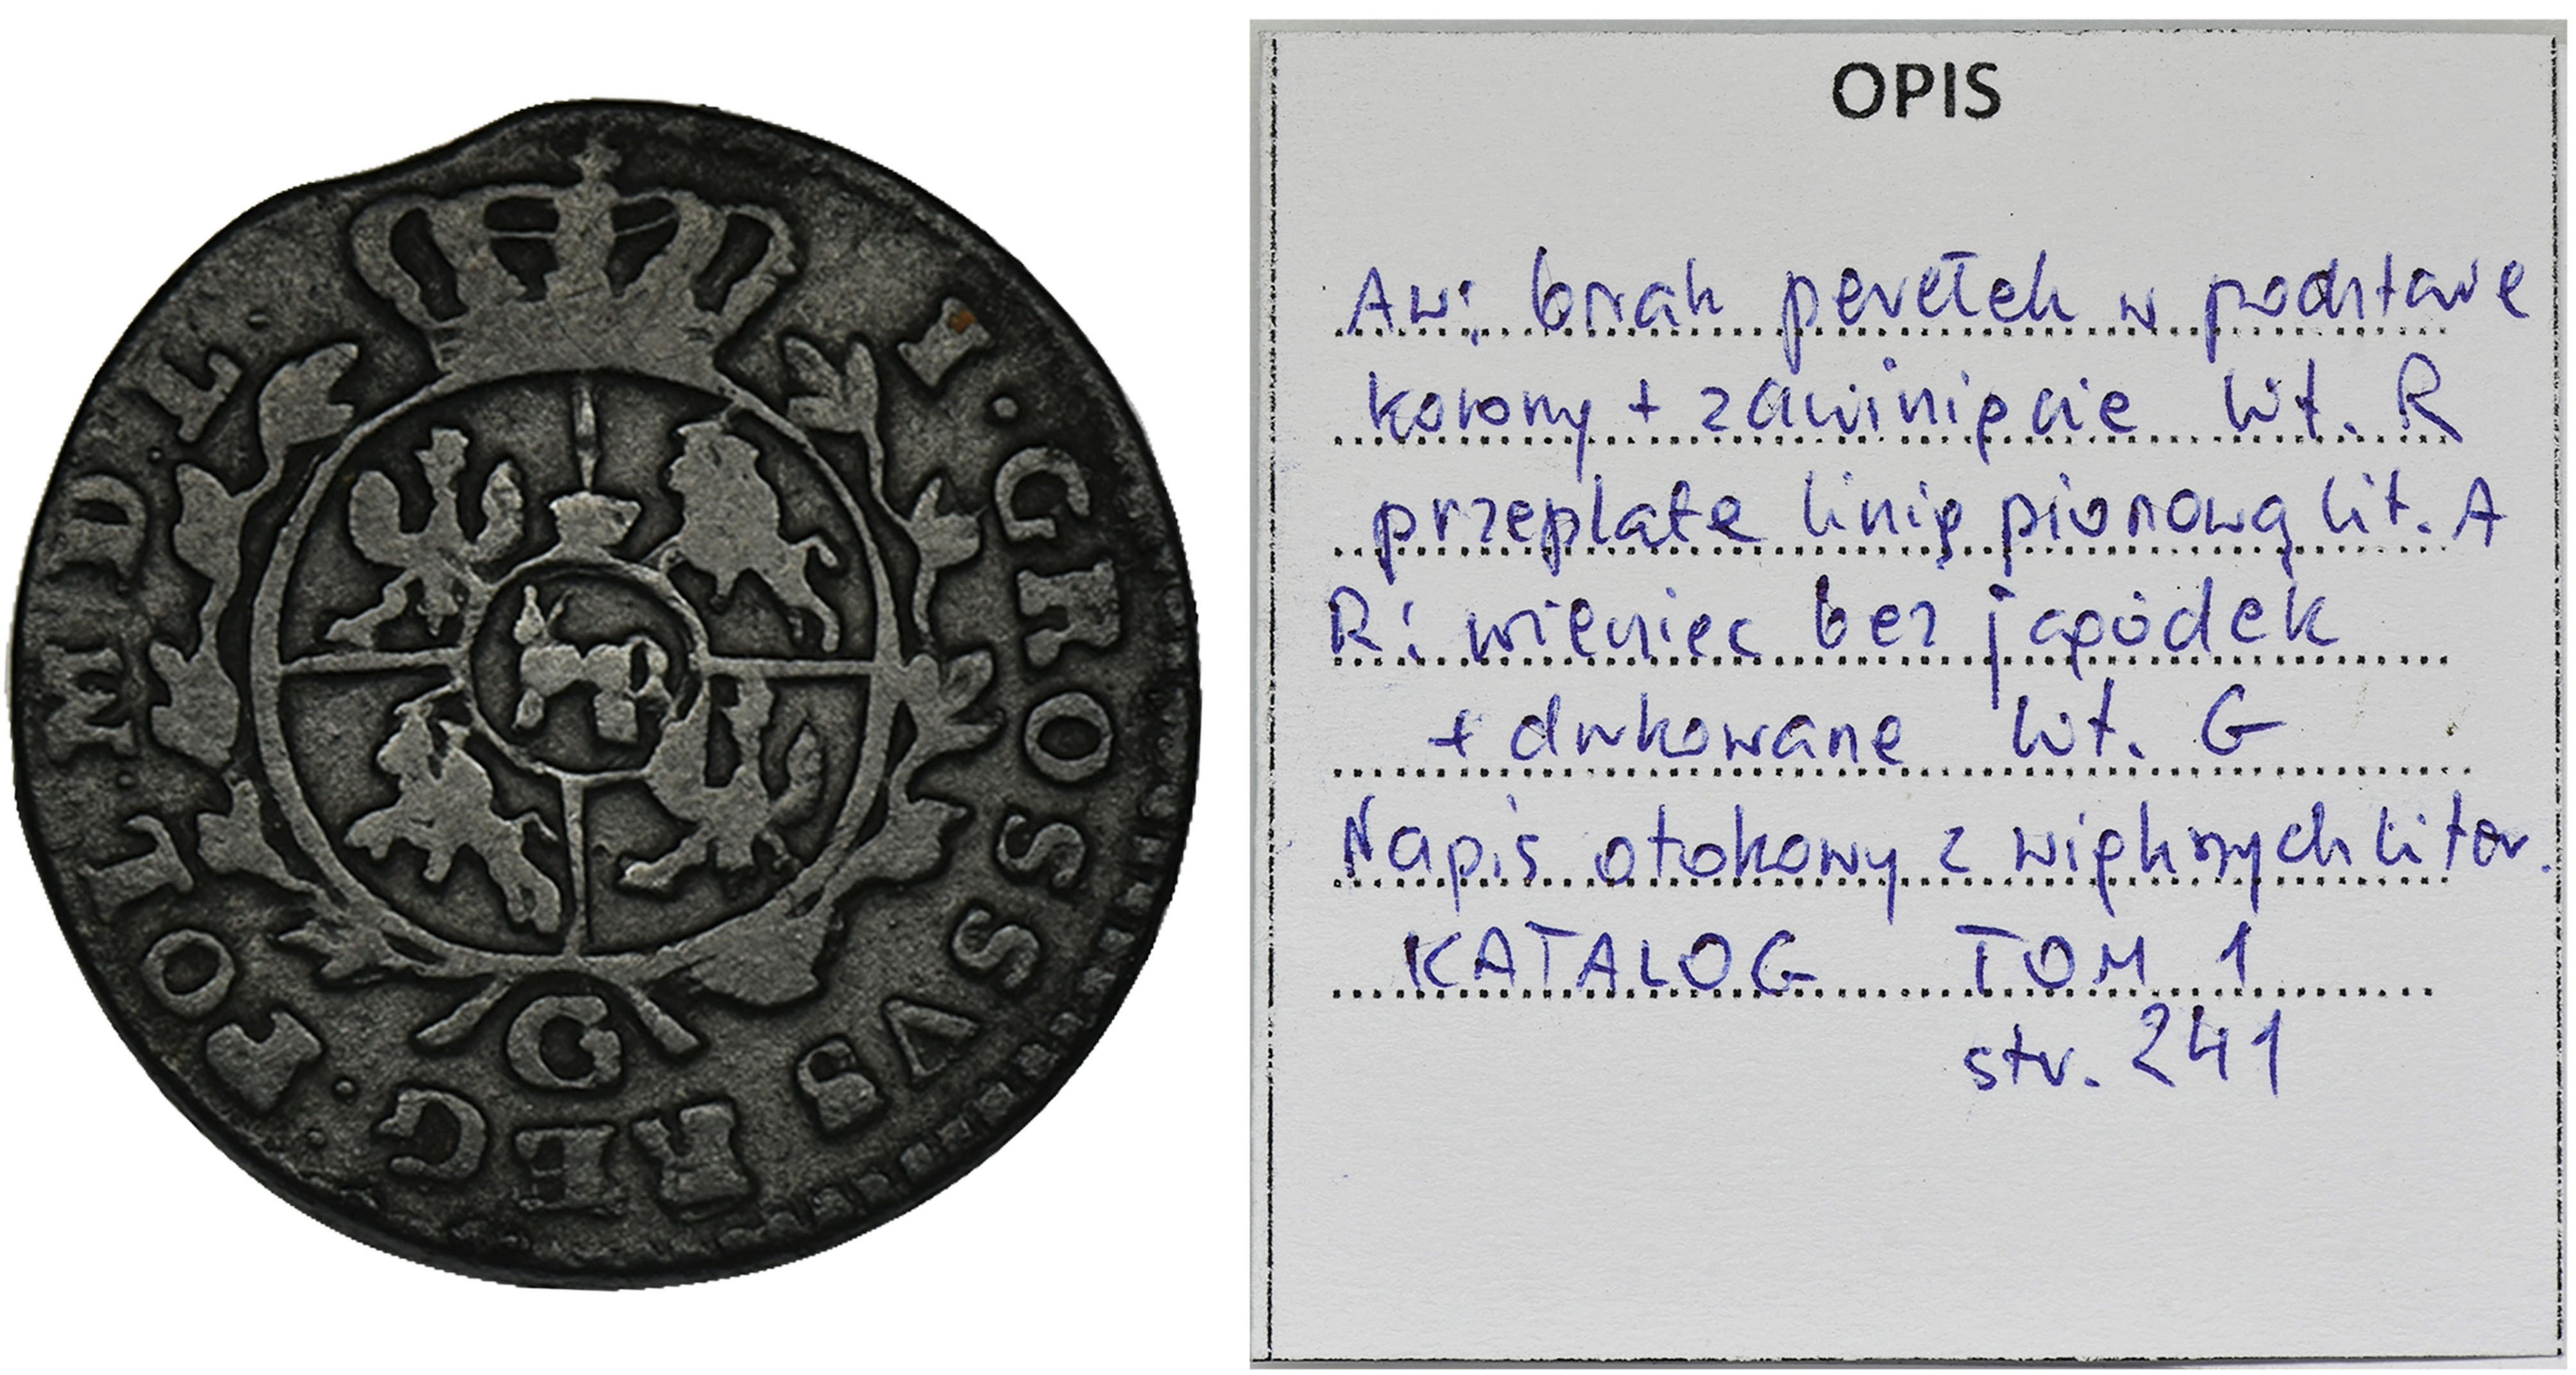 I · GROSSVS REG · POL · M · D · L ·
G
OPIS
Aw: brak perełek w podstawie
korony + zawinięcie lit. R
przeplata linię pionową lit. A
R: wieniec bez jagódek
+ drukowane lit. G
Napis otokowy z większych liter.
KATALOG TOM 1
str. 241